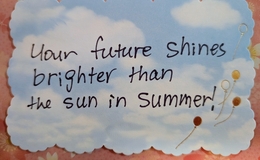 Your future shines
brighter than
the sun in Summer!